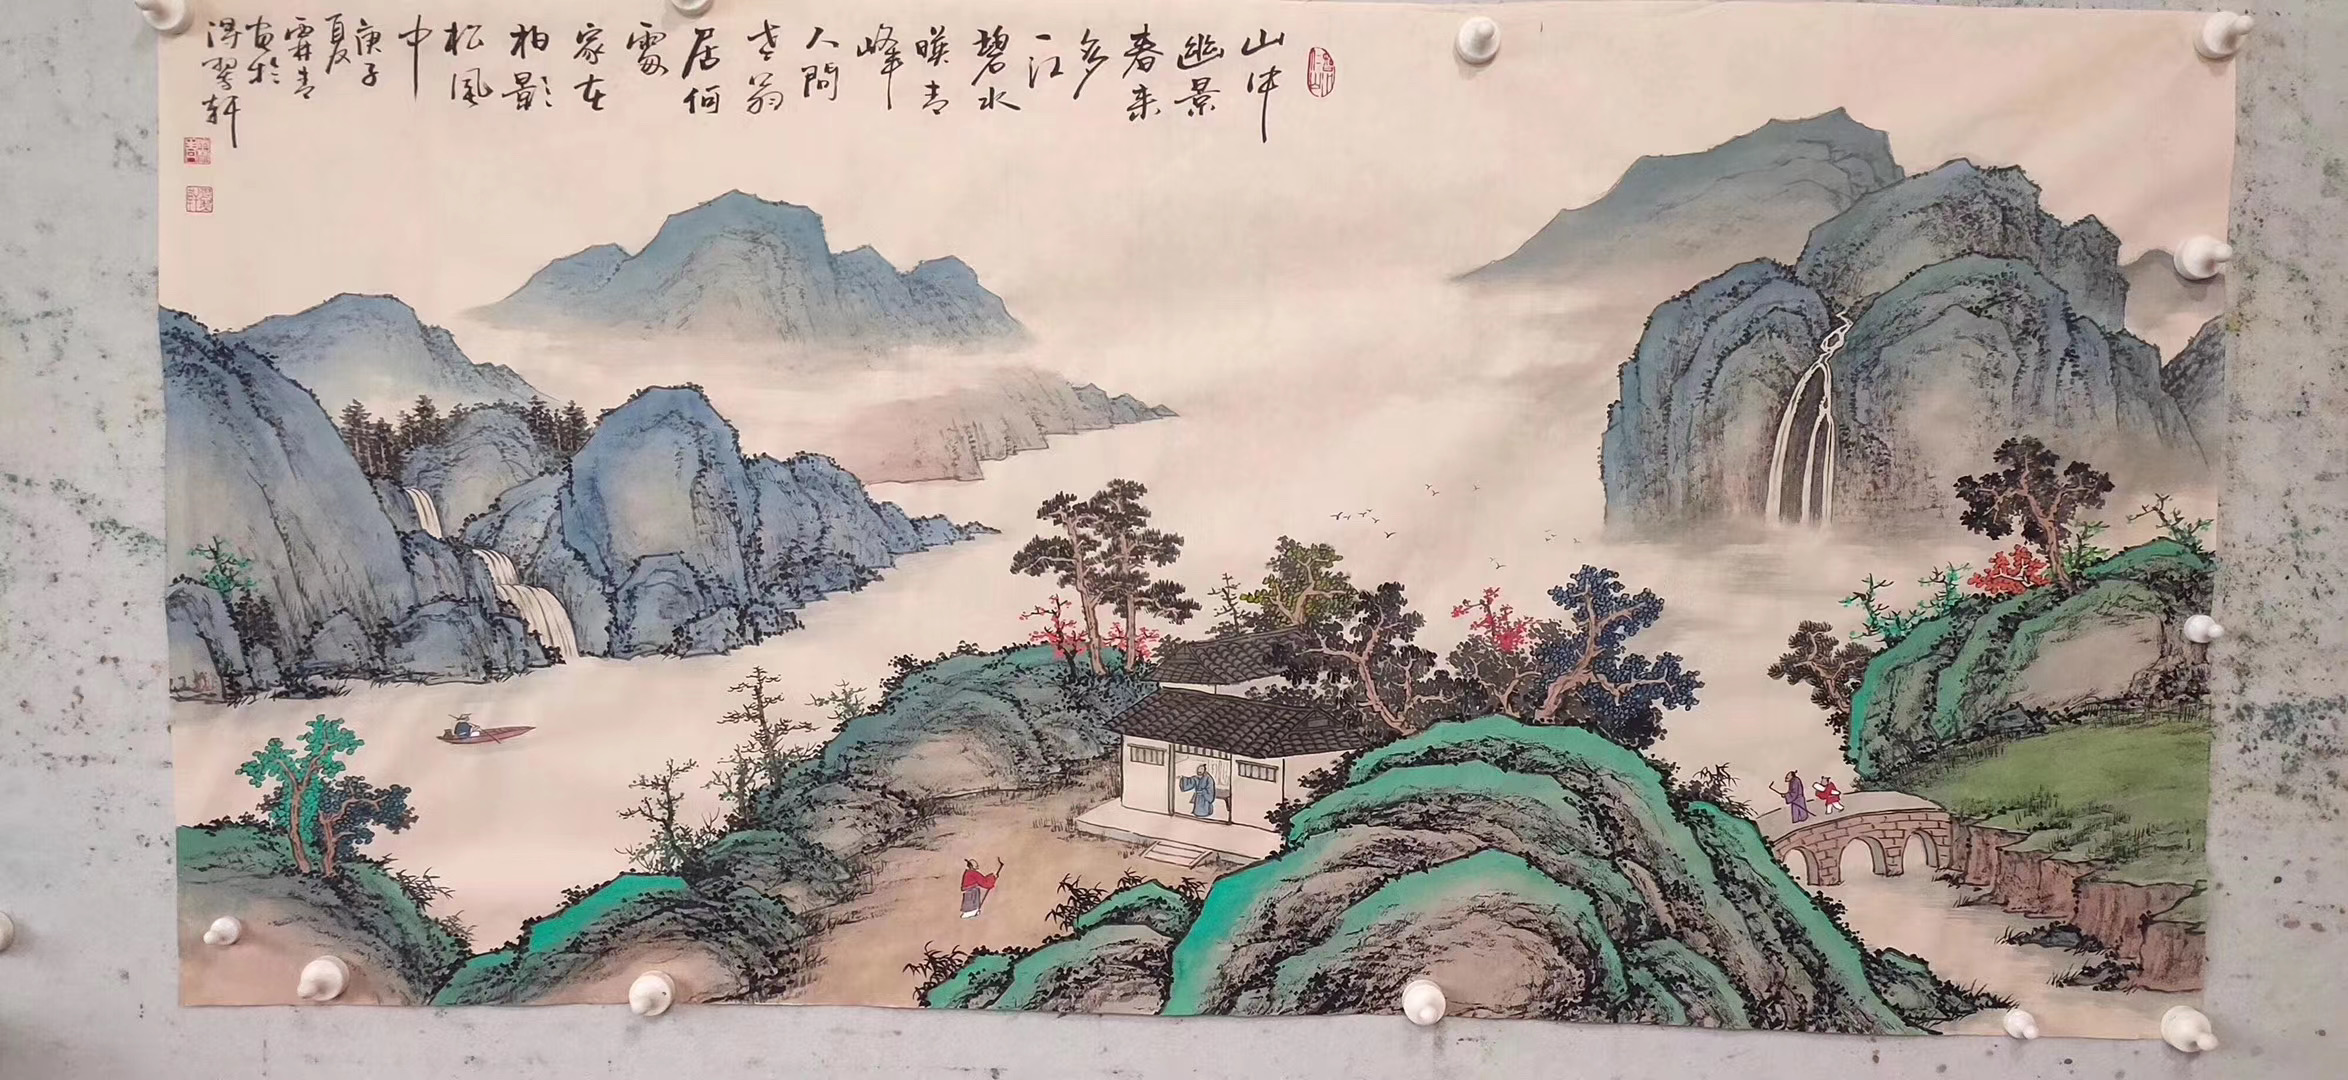 山中
幽景
春来
多
一江
碧水
暎青
峰
人間
老翁
居何
處
家在
柏影
松風
中
庚子
夏
霖青
於
得翠轩